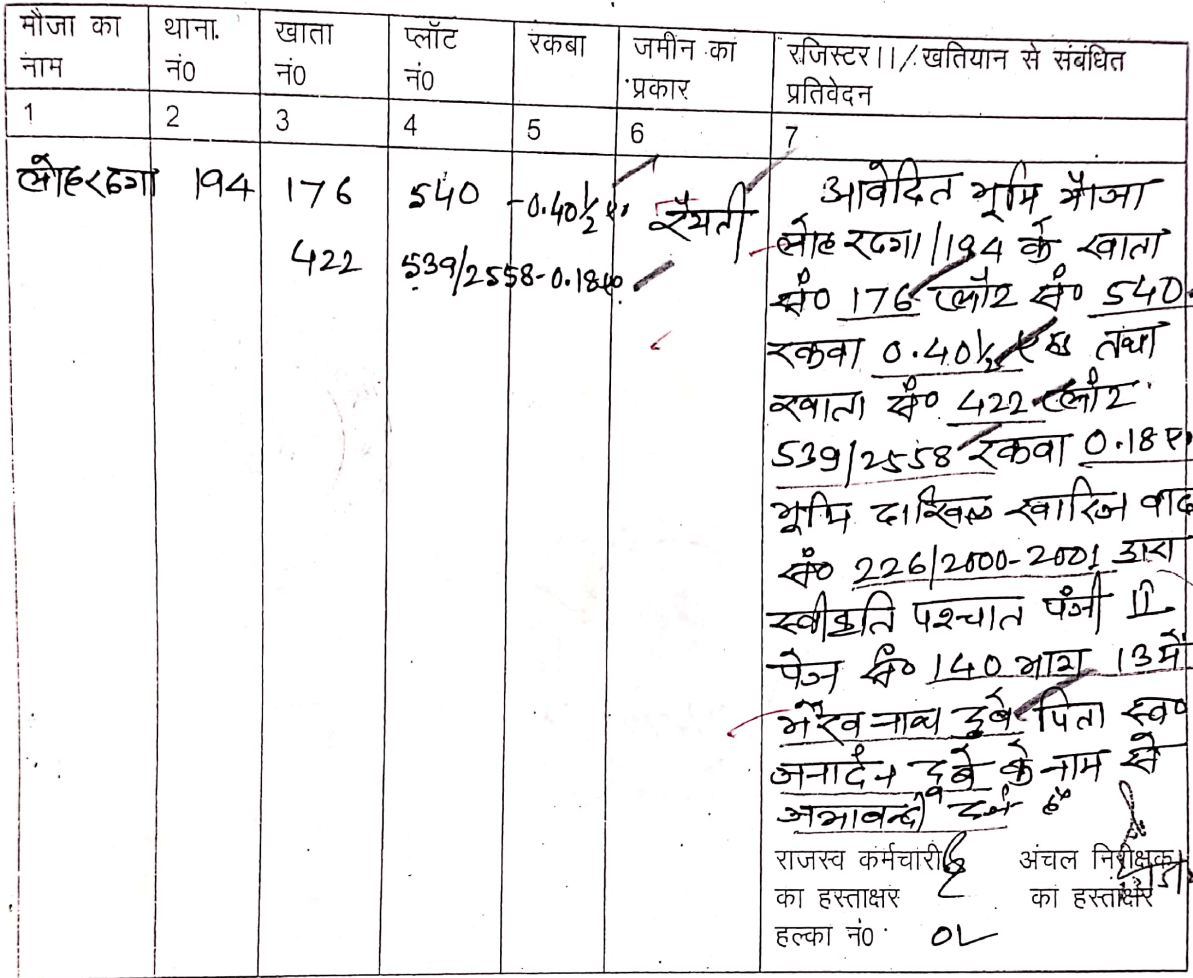 मौजा का नाम | थाना. नं0 | खाता नं0 | प्लॉट नं0 | रकबा | जमीन का प्रकार | रजिस्टर II / खतियान से संबंधित प्रतिवेदन
1 | 2 | 3 | 4 | 5 | 6 | 7
लोहरदगा 194 176 540 -0.40½ ए० रैयती
422 539/2558-0.18 ए०
आवेदित भूमि मौजा
लोहरदगा/194 के खाता
सं० 176 प्लौट सं० 540
रकवा 0.40½ ए० तथा
खाता सं० 422 प्लौट
539/2558 रकवा 0.18 ए०
भूमि दाखिल खारिज वाद
सं० 226/2000-2001 द्वारा
स्वीकृति पश्चात पंजी II
पेज सं० 140 भाग 13 में
भैरव नाथ दुबे पिता स्व०
जनार्दन दुबे के नाम से
जमाबन्दी दर्ज है
राजस्व कर्मचारी अंचल निरीक्षक
का हस्ताक्षर का हस्ताक्षर
हल्का नं0